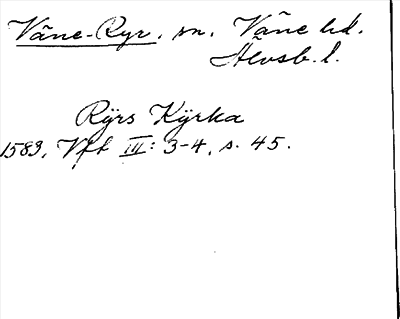 Väne-Ryr, sn. Väne hd.
Älvsb. l.
Rÿrs Kÿrka
1583, Vft III: 3-4, s. 45.